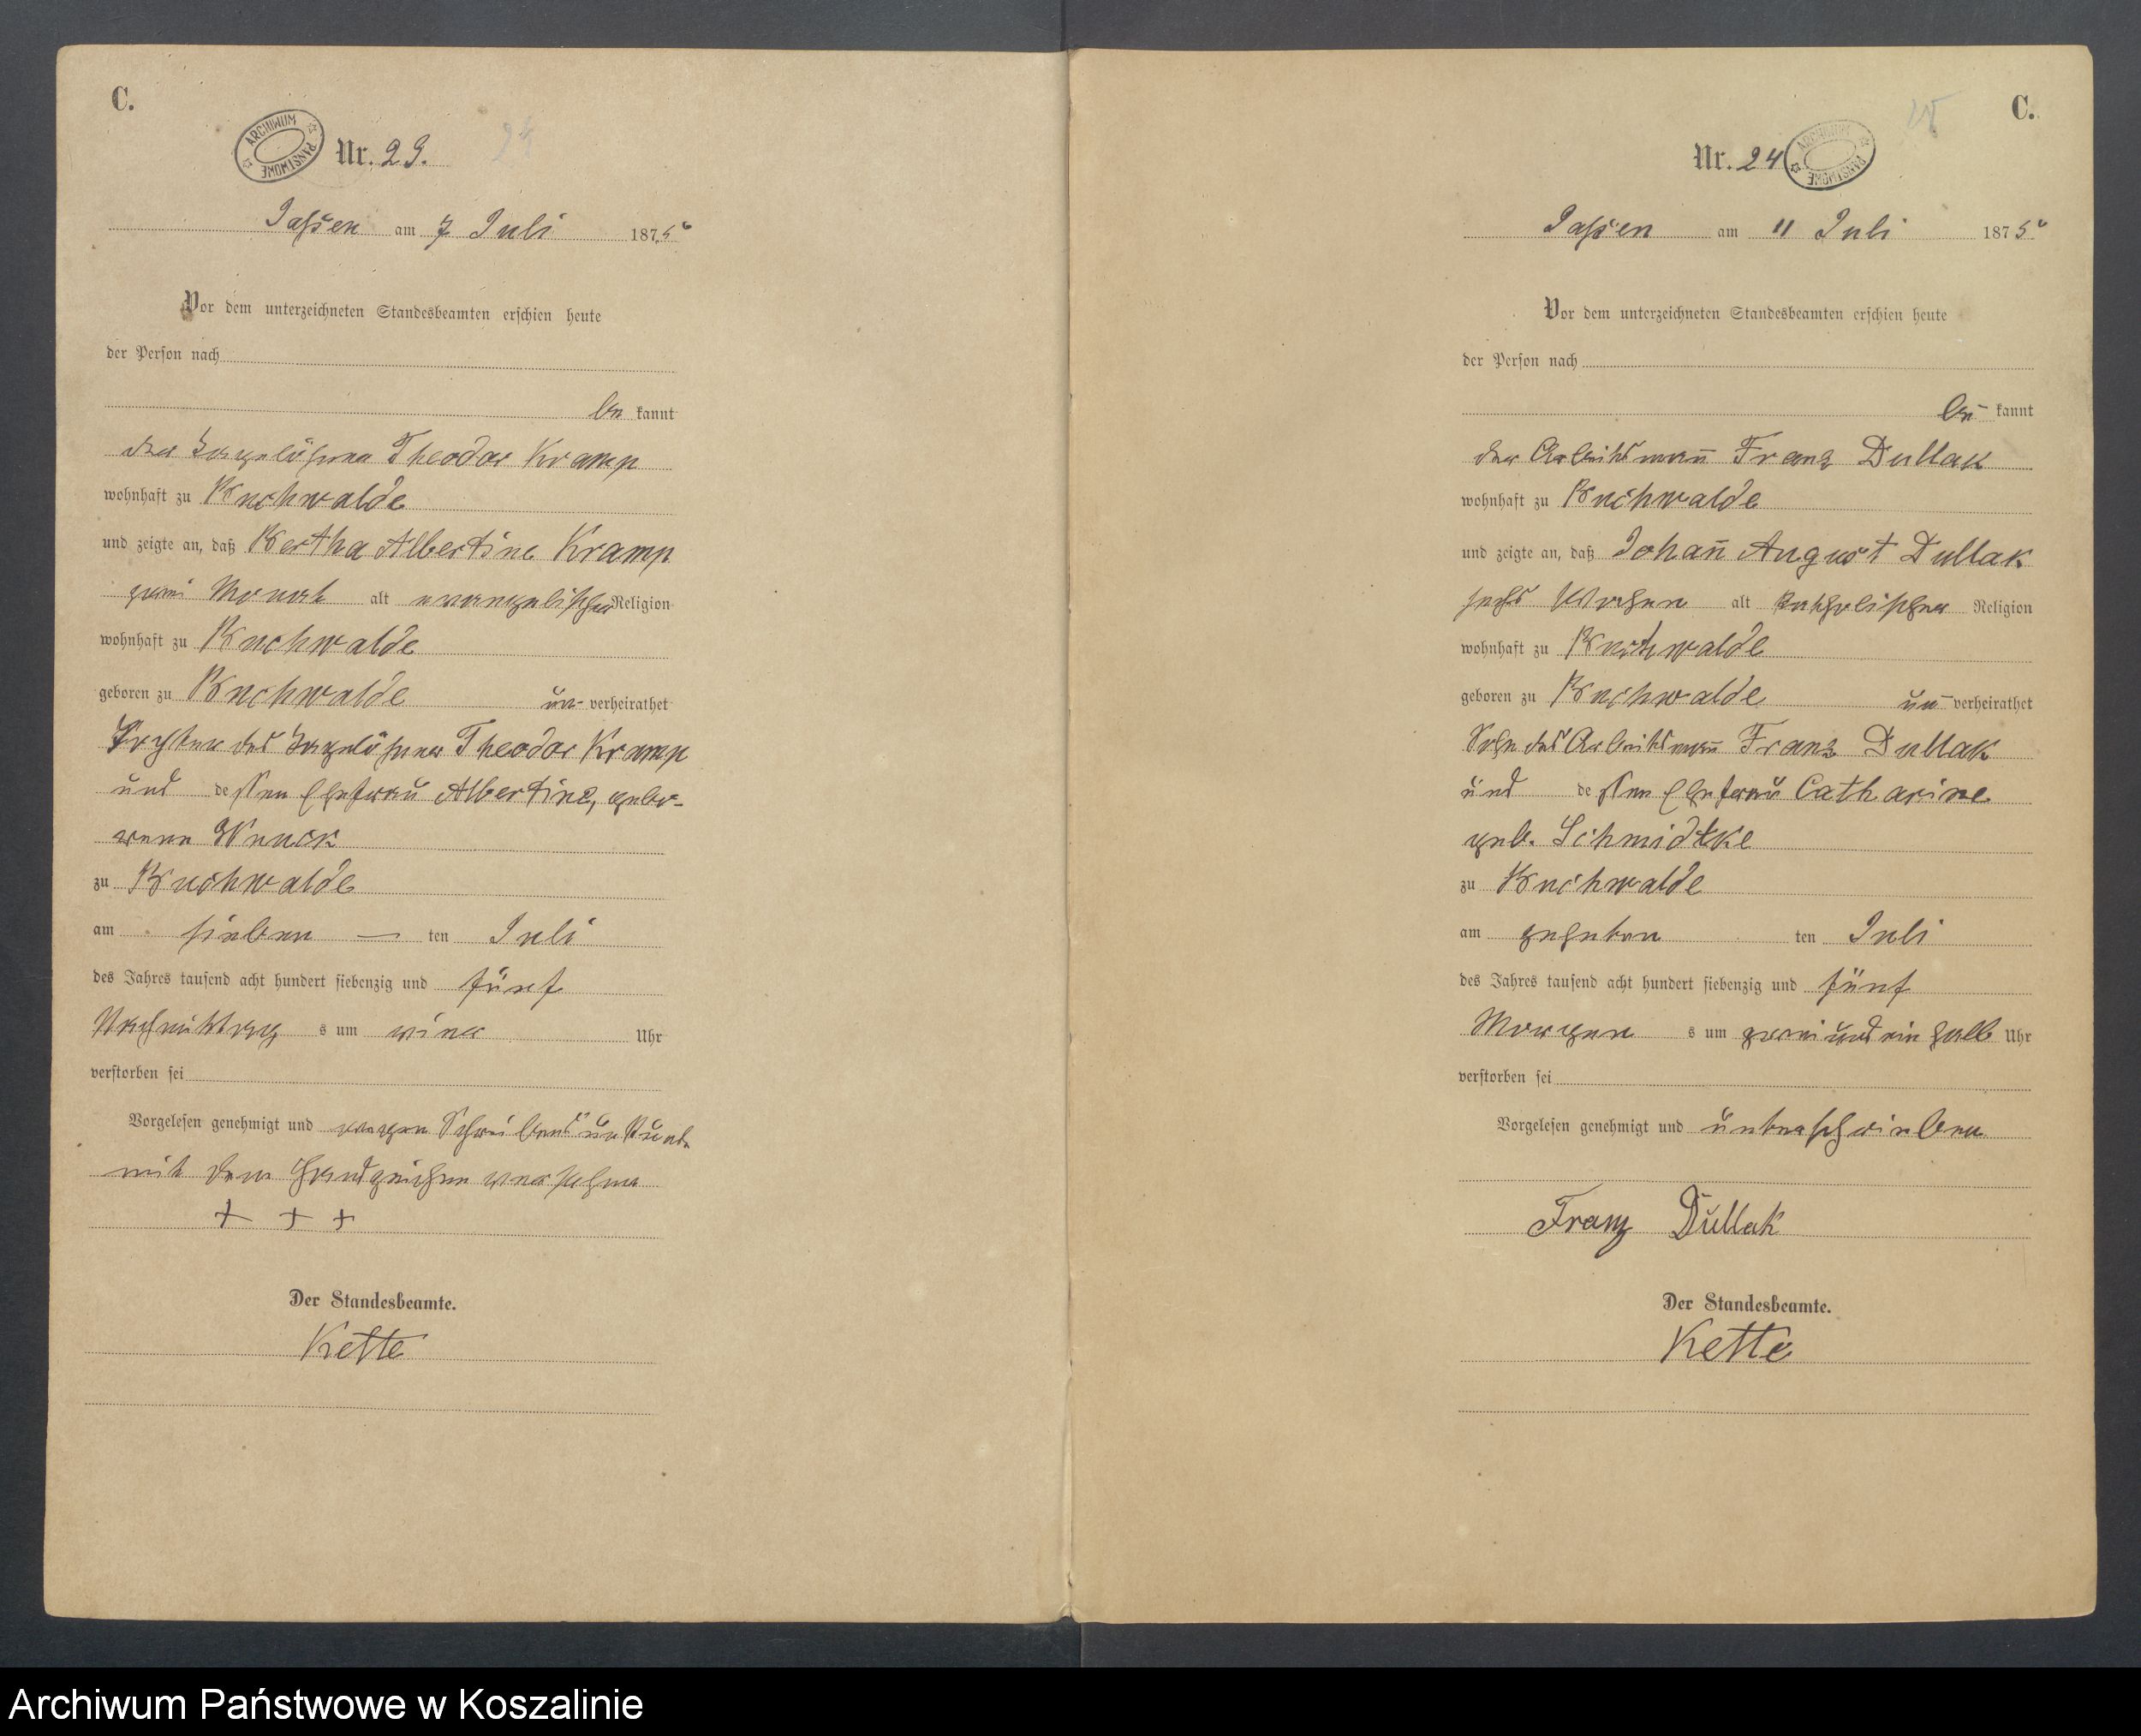 C.
ARCHIWUM PAŃSTWOWE
Nr. 23.
24
Jassen am 7 Juli 1875
Vor dem unterzeichneten Standesbeamten erschien heute
der Person nach
be kannt
der Tagelöhner Theodor Kramp
wohnhaft zu Buchwalde
und zeigte an, daß Bertha Albertine Kramp
zwei Monat alt evangelischer Religion
wohnhaft zu Buchwalde
geboren zu Buchwalde un- verheirathet
Tochter des Tagelöhner Theodor Kramp
und de ssen Ehefrau Albertine, gebo-
rene
zu Buchwalde
am sieben — ten Juli
des Jahres tausend acht hundert siebenzig und fünf
Nachmittag s um eine Uhr
verstorben sei
Vorgelesen genehmigt und wegen Schreibens unkunde
mit dem Handzeichen versehen
+ + +
Der Standesbeamte.
Kette
C.
Nr. 24
ARCHIWUM PAŃSTWOWE
Jassen am 11 Juli 1875
Vor dem unterzeichneten Standesbeamten erschien heute
der Person nach
be- kannt
der Arbeitsmañ Franz Dullak
wohnhaft zu Buchwalde
und zeigte an, daß Johañ August Dullak
sechs Wochen alt katholischer Religion
wohnhaft zu Buchwalde
geboren zu Buchwalde un- verheirathet
Sohn des Arbeitsmañ Franz Dullak
und de ssen Ehefrau Catharine
geb. Schmidtke
zu Buchwalde
am zehnten ten Juli
des Jahres tausend acht hundert siebenzig und fünf
Morgen s um zwei und ein halb Uhr
verstorben sei
Vorgelesen genehmigt und unterschrieben
Franz Dullak
Der Standesbeamte.
Kette
Archiwum Państwowe w Koszalinie